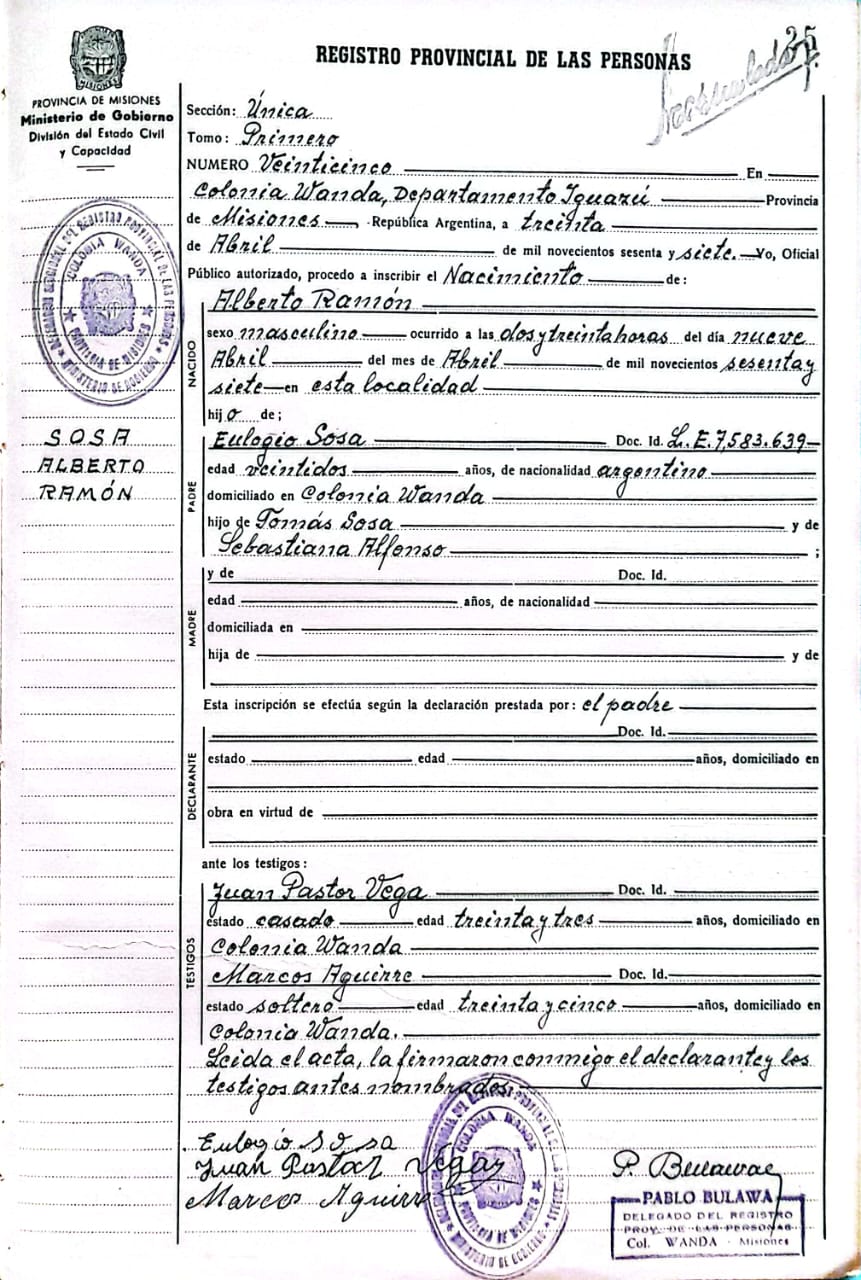 25
REGISTRO PROVINCIAL DE LAS PERSONAS
PROVINCIA DE MISIONES
Ministerio de Gobierno
División del Estado Civil
y Capacidad
Sección: Única
Tomo: Primero
NUMERO Veinticinco En
Colonia Wanda, Departamento Iguazú Provincia
de Misiones, República Argentina, a treinta
de Abril de mil novecientos sesenta y siete. Yo, Oficial
Público autorizado, procedo a inscribir el Nacimiento de:
COLONIA WANDA
PROVINCIA DE MISIONES
MINISTERIO DE GOBIERNO
SOSA
ALBERTO
RAMÓN
NACIDO
Alberto Ramón
sexo masculino ocurrido a las dos y treinta horas del día nueve
Abril del mes de Abril de mil novecientos sesenta y
siete en esta localidad
hijo de;
PADRE
Eulogio Sosa Doc. Id. L.E. 7,583.639
edad veintidos años, de nacionalidad argentino
domiciliado en Colonia Wanda
hijo de Tomás Sosa y de
Sebastiana Alfonso ;
MADRE
y de Doc. Id.
edad años, de nacionalidad
domiciliada en
hija de y de
Esta inscripción se efectúa según la declaración prestada por: el padre
DECLARANTE
Doc. Id.
estado edad años, domiciliado en
obra en virtud de
ante los testigos:
TESTIGOS
Juan Pastor Vega Doc. Id.
estado casado edad treinta y tres años, domiciliado en
Colonia Wanda
Marcos Aguirre Doc. Id.
estado soltero edad treinta y cinco años, domiciliado en
Colonia Wanda.
Leida el acta, la firmaron conmigo el declarante y los
testigos antes nombrados
Eulogio Sosa
Juan Pastor Vega
Marcos Aguirre
COLONIA WANDA
PROVINCIA DE MISIONES
MINISTERIO DE GOBIERNO
PABLO BULAWA
DELEGADO DEL REGISTRO
PROV. DE LAS PERSONAS
Col. WANDA - Misiones